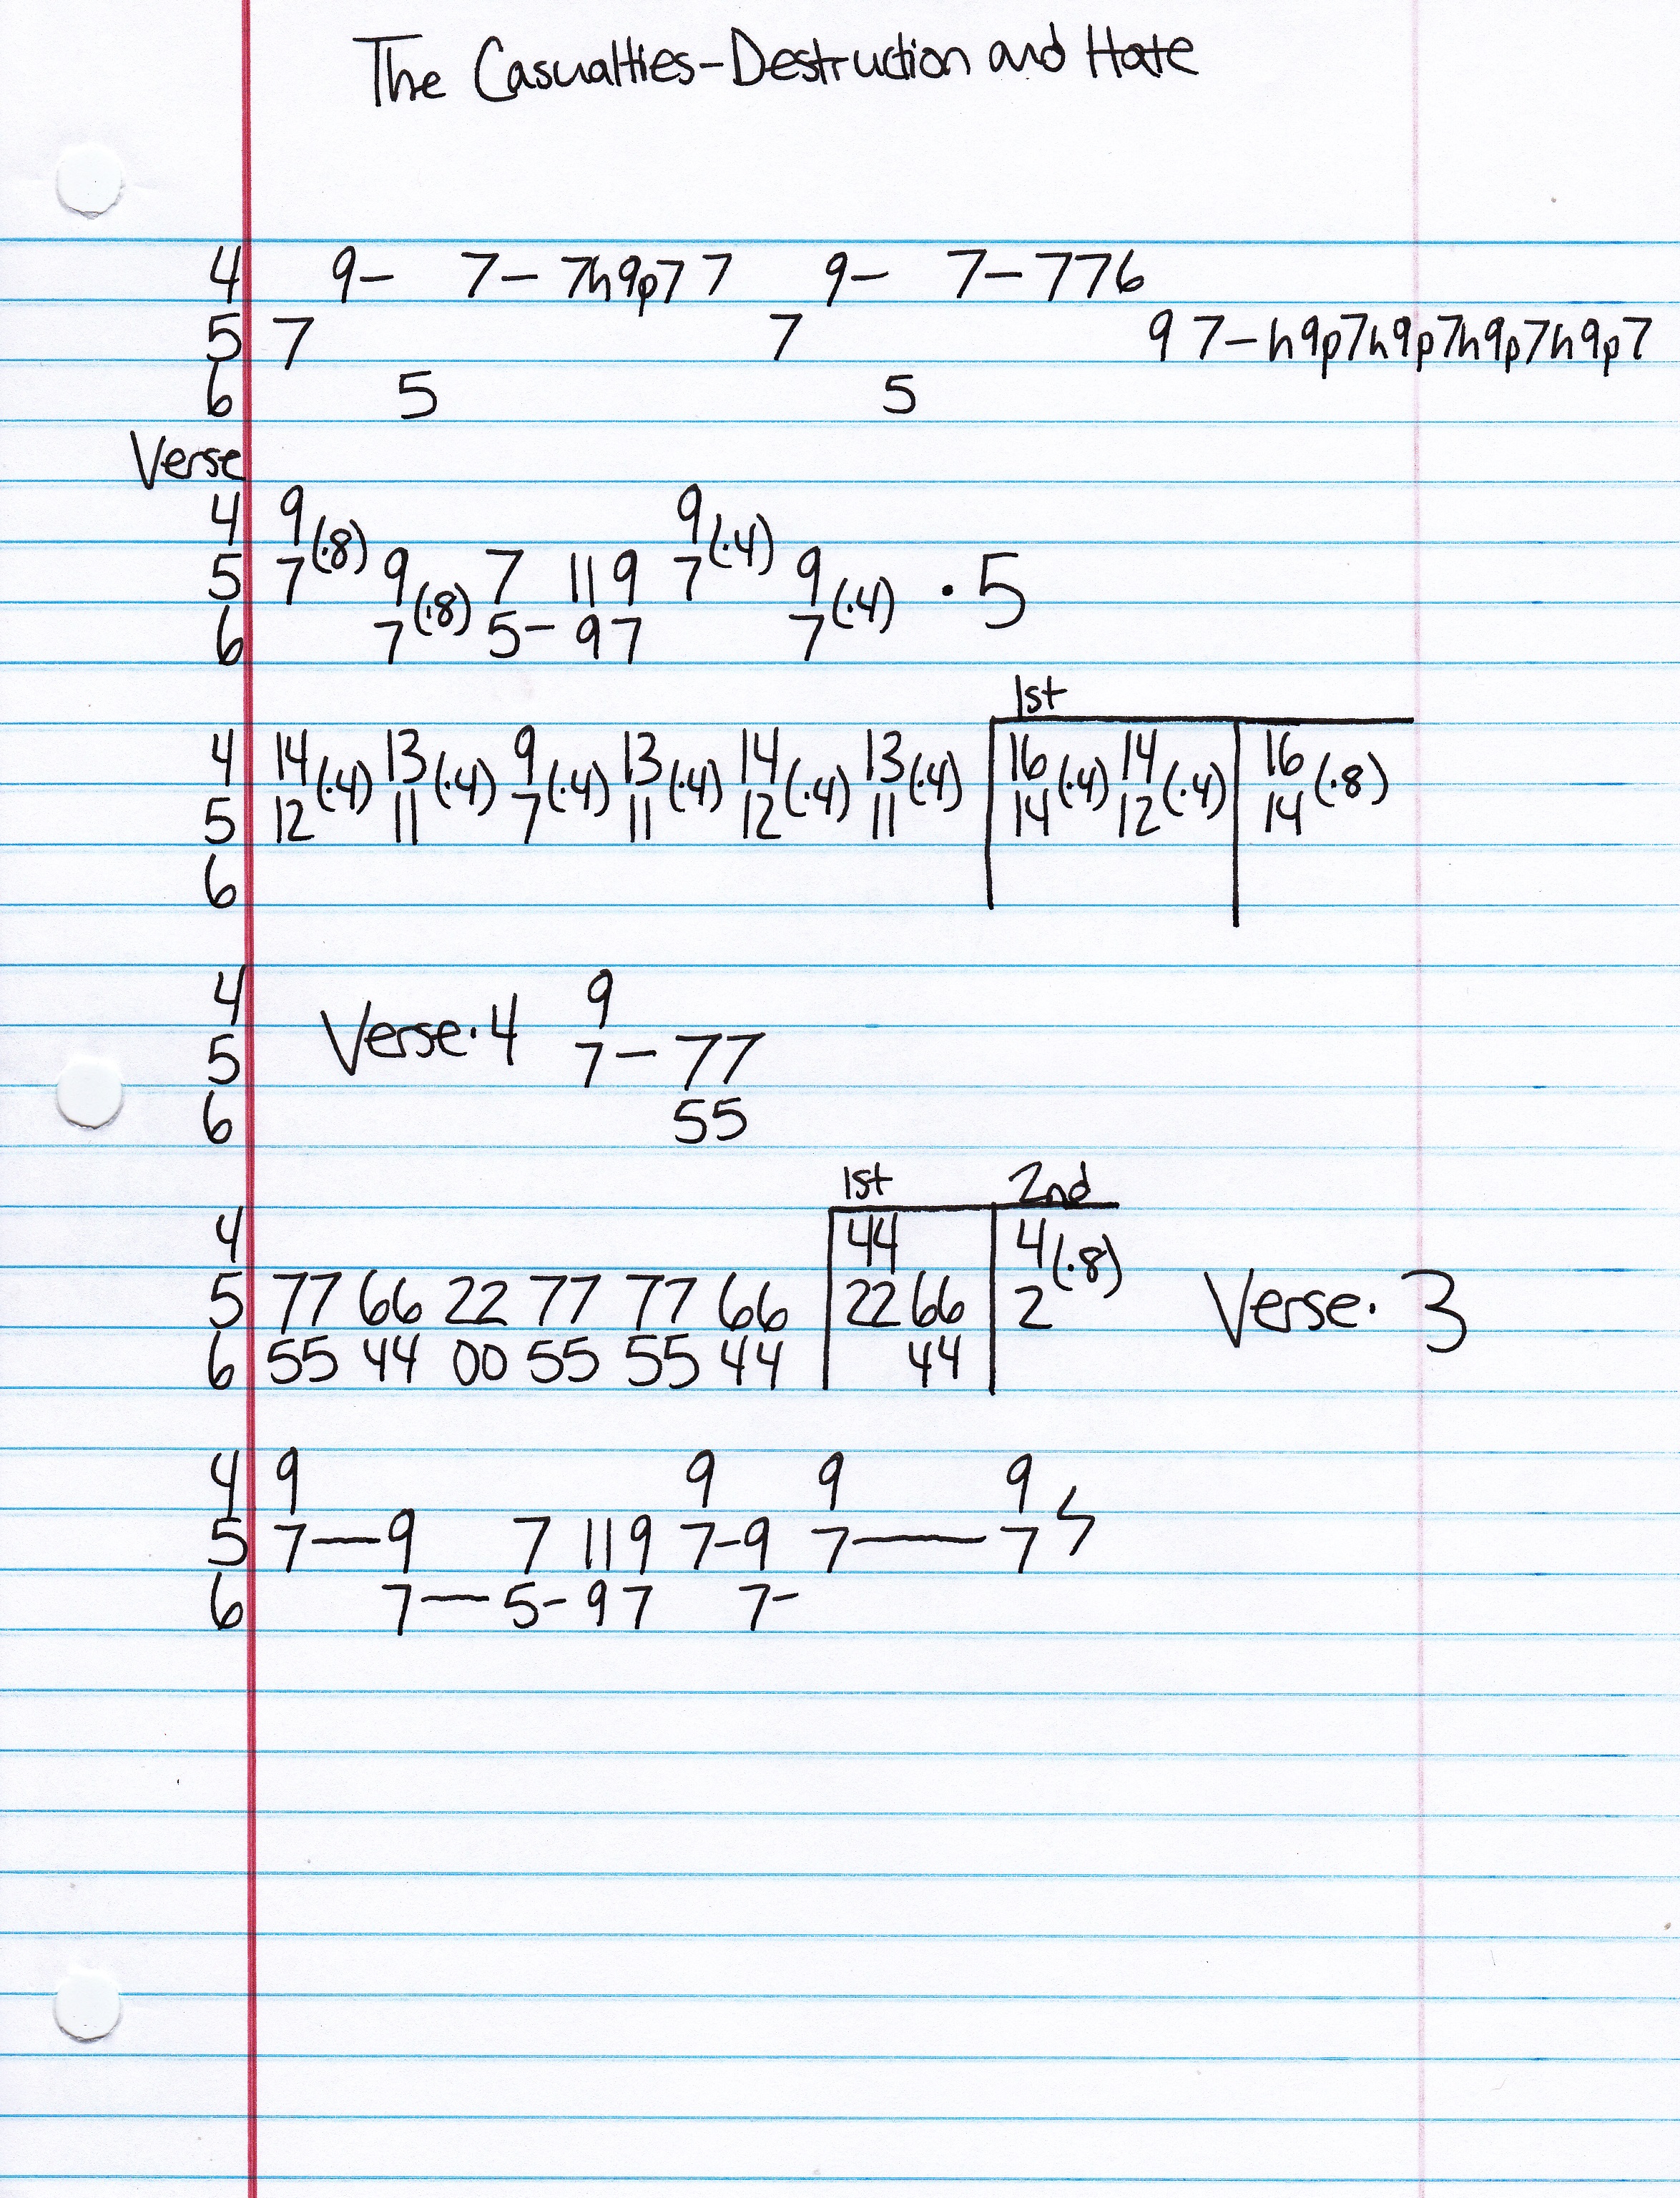 The Casualties-Destruction and Hate
4 9- 7- 7h9p7 7 9- 7-776
5 7 7 9 7-h9p7h9p7h9p7h9p7
6 5 5
Verse
4 9 9
5 7(·8) 9 7 119 7(·4) 9 ·5
6 7(·8) 5- 97 7(·4)
1st
4 14(·4) 13(·4) 9(·4) 13(·4) 14(·4) 13(·4) 16(·4) 14(·4) 16(·8)
5 12 11 7 11 12 11 14 12 14
6
4 9
Verse·4
5 7-77
6 55
1st 2nd
4 44 4(·8)
5 77 66 22 77 77 66 22 66 2 Verse· 3
6 55 44 00 55 55 44 44
4 9 9 9 9
5 7-9 7 119 7-9 7-7
6 7-5-97 7-